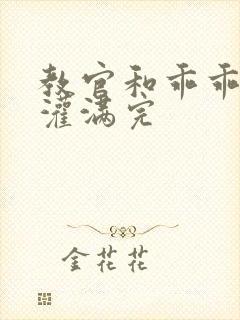 教官和乖乖
灌满完
金花花